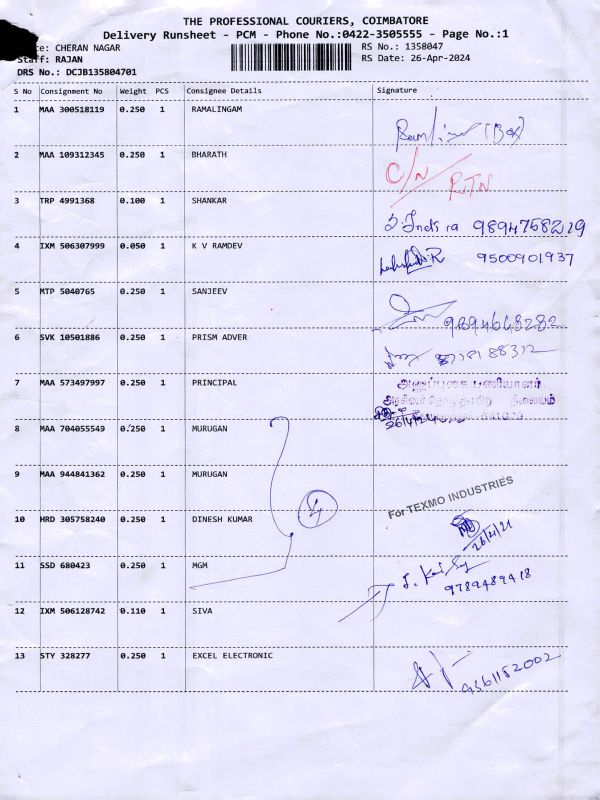 THE PROFESSIONAL COURIERS, COIMBATORE
Delivery Runsheet - PCM - Phone No.:0422-3505555 - Page No.:1
: CHERAN NAGAR
RS No.: 1358047
Staff: RAJAN
RS Date: 26-Apr-2024
DRS No.: DCJB135804701
S No Consignment No Weight PCS Consignee Details Signature
1 MAA 300518119 0.250 1 RAMALINGAM
(Box)
2 MAA 109312345 0.250 1 BHARATH
C/N RTN
3 TRP 4991368 0.100 1 SHANKAR
9894758219
4 IXM 506307999 0.050 1 K V RAMDEV
9500901937
5 MTP 5040765 0.250 1 SANJEEV
9894668282
6 SVK 10501886 0.250 1 PRISM ADVER
7 MAA 573497997 0.250 1 PRINCIPAL
அனுப்புகை பணியாளர்
8 MAA 704055549 0.250 1 MURUGAN
9 MAA 944841362 0.250 1 MURUGAN
4
For TEXMO INDUSTRIES
10 HRD 305758240 0.250 1 DINESH KUMAR
11 SSD 680423 0.250 1 MGM
9789489418
12 IXM 506128742 0.110 1 SIVA
13 STY 328277 0.250 1 EXCEL ELECTRONIC
9361152002